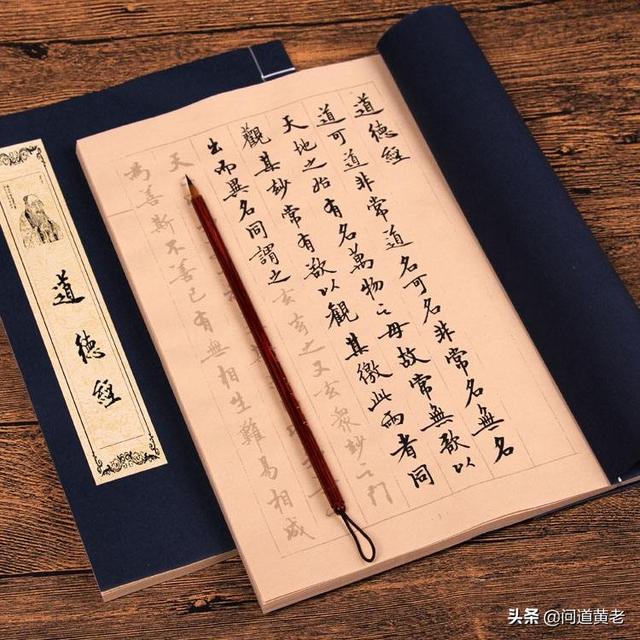 道德經
道可道非常道名可名非常名無名
天地之始有名萬物之母故常無欲以
觀其妙常有欲以觀其徼此兩者同
出而異名同謂之玄玄之又玄衆妙之門
天
為善斯不善已有無相生難易相成
道德經
头条 @问道黄老